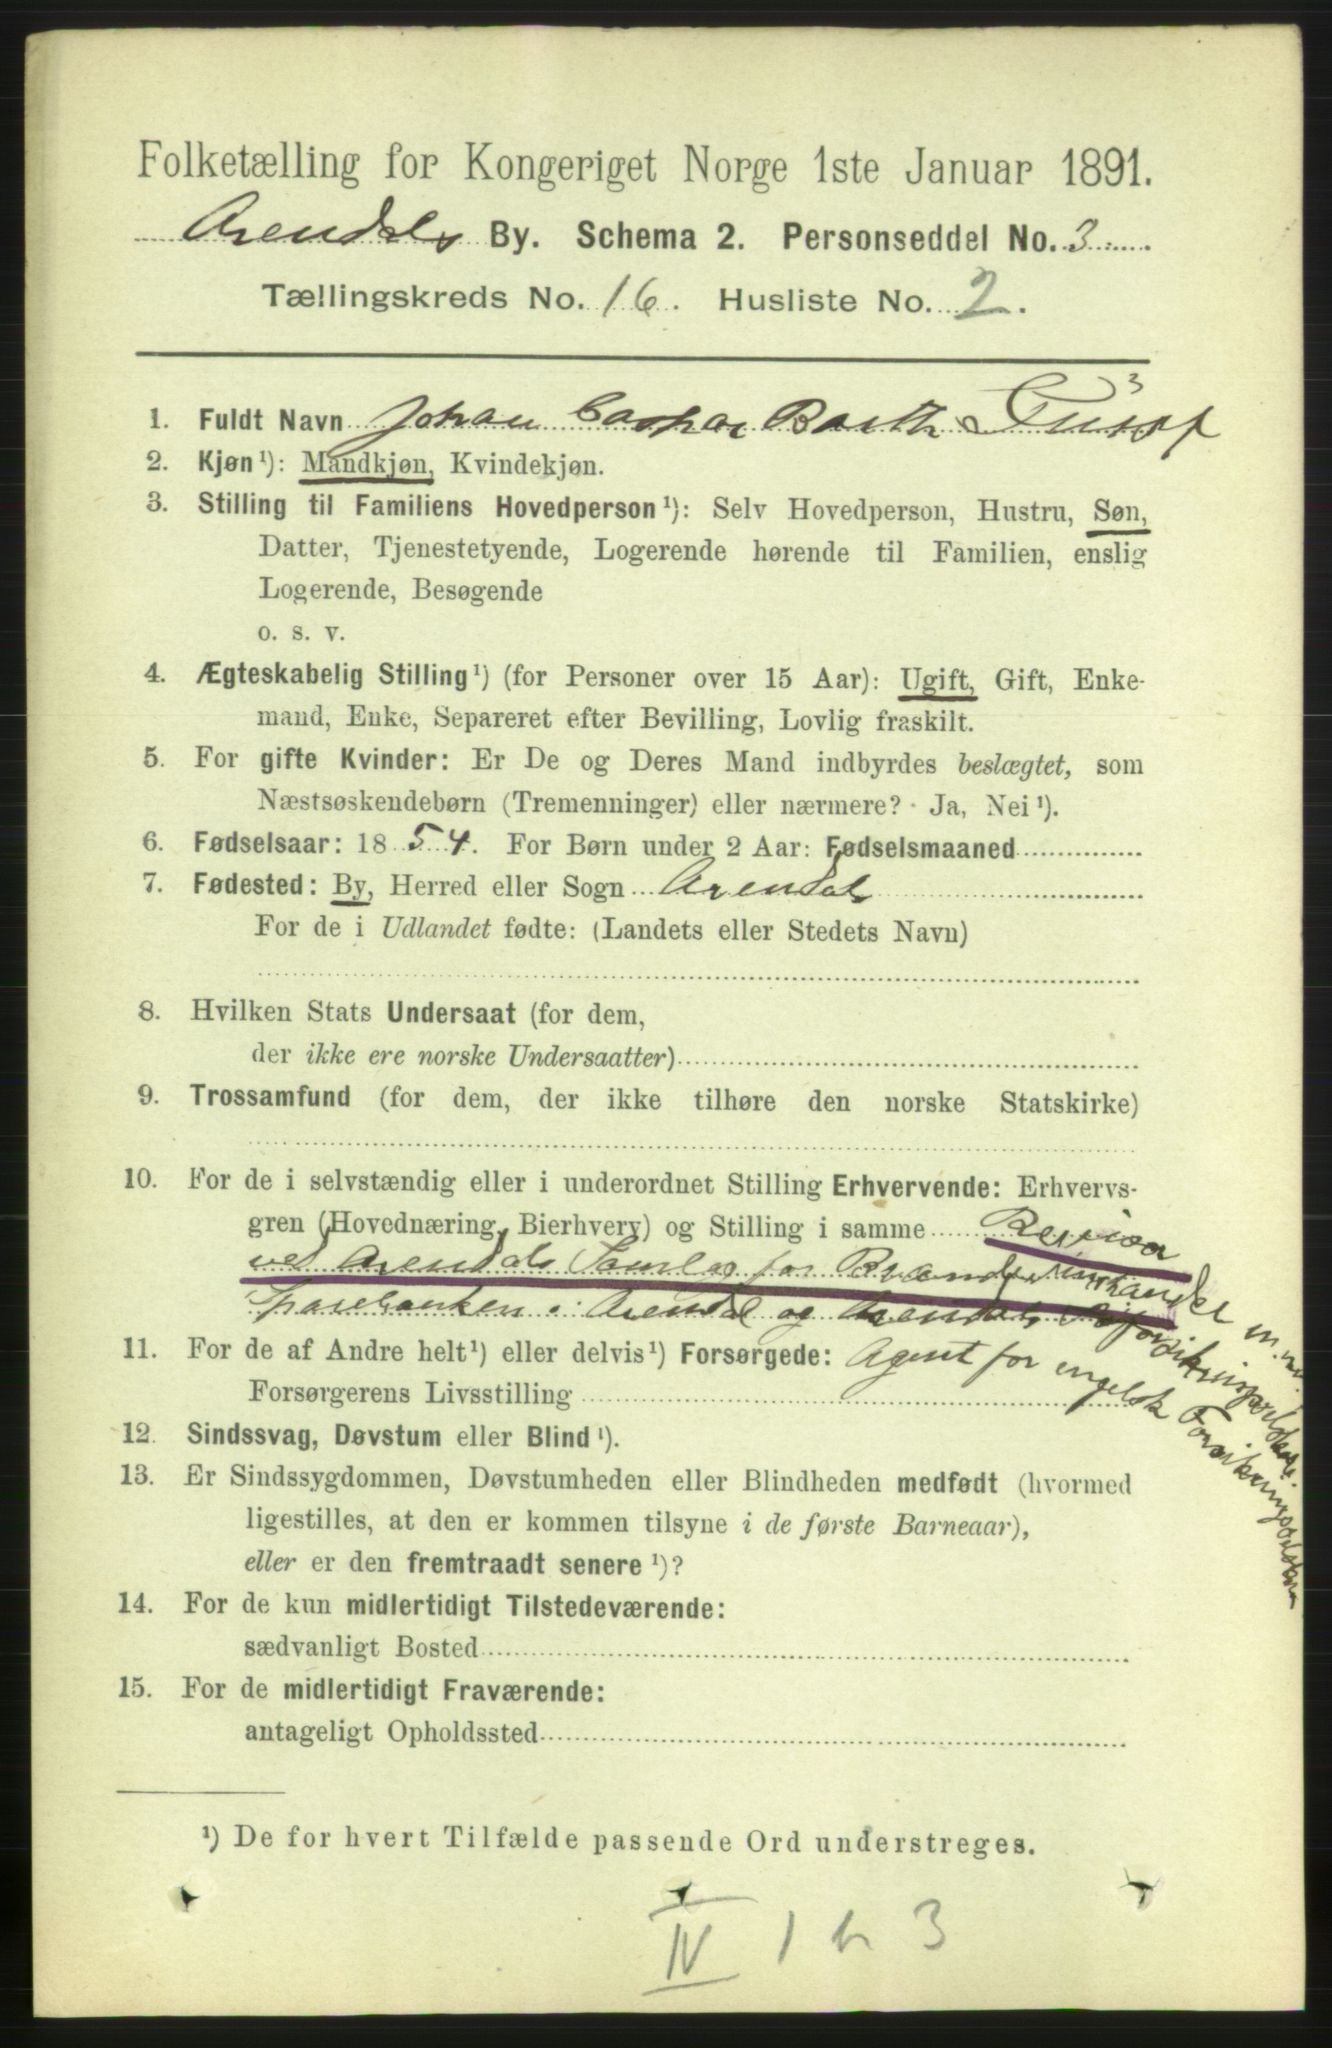 Folketælling for Kongeriget Norge 1ste Januar 1891.
Arendals By. Schema 2. Personseddel No. 3
Tællingskreds No. 16. Husliste No. 2.
1. Fuldt Navn Johan Caspar Barth
2. Kjøn¹): Mandkjøn, Kvindekjøn.
3. Stilling til Familiens Hovedperson¹): Selv Hovedperson, Hustru, Søn,
Datter, Tjenestetyende, Logerende hørende til Familien, enslig
Logerende, Besøgende
o. s. v.
4. Ægteskabelig Stilling¹) (for Personer over 15 Aar): Ugift, Gift, Enke-
mand, Enke, Separeret efter Bevilling, Lovlig fraskilt.
5. For gifte Kvinder: Er De og Deres Mand indbyrdes beslægtet, som
Næstsøskendebørn (Tremenninger) eller nærmere? Ja, Nei¹).
6. Fødselsaar: 1854. For Børn under 2 Aar: Fødselsmaaned
7. Fødested: By, Herred eller Sogn Arendal
For de i Udlandet fødte: (Landets eller Stedets Navn)
8. Hvilken Stats Undersaat (for dem,
der ikke ere norske Undersaatter)
9. Trossamfund (for dem, der ikke tilhøre den norske Statskirke)
10. For de i selvstændig eller i underordnet Stilling Erhvervende: Erhvervs-
gren (Hovednæring, Bierhverv) og Stilling i samme Revisor
ved Arendals Samlag for Brændevinshandel m. m.
Sparebanken i Arendal og Arendals
11. For de af Andre helt¹) eller delvis¹) Forsørgede: Agent for engelsk
Forsørgerens Livsstilling
12. Sindssvag, Døvstum eller Blind¹).
13. Er Sindssygdommen, Døvstumheden eller Blindheden medfødt (hvormed
ligestilles, at den er kommen tilsyne i de første Barneaar),
eller er den fremtraadt senere¹)?
14. For de kun midlertidigt Tilstedeværende:
sædvanligt Bosted
15. For de midlertidigt Fraværende:
antageligt Opholdssted
¹) De for hvert Tilfælde passende Ord understreges.
IV 1 h 3